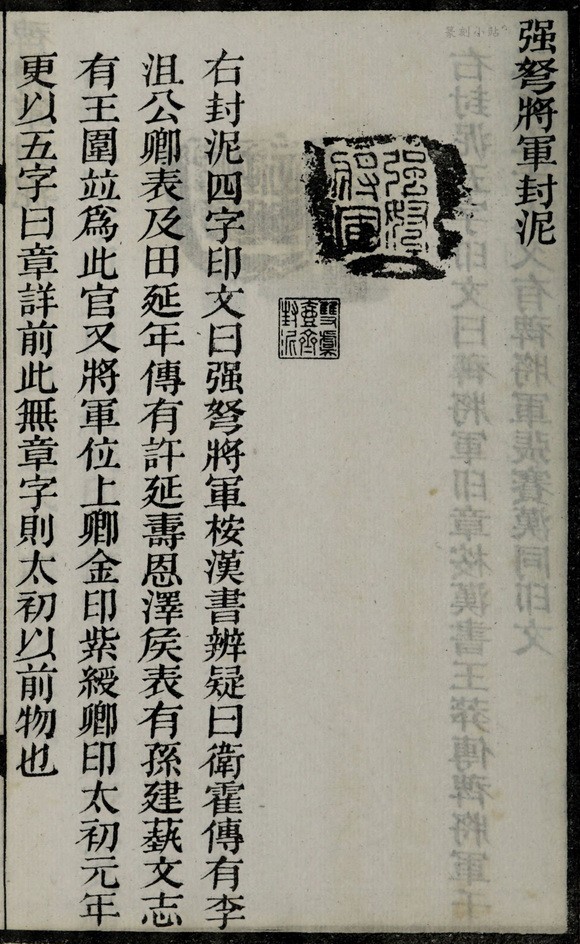 强弩將軍封泥
篆刻小站
强弩將軍
雙虞壺齋封泥
右封泥四字印文曰强弩將軍桉漢書辨疑曰衛霍傳有李
沮公卿表及田延年傳有許延壽恩澤矦表有孫建蓺文志
有王圍竝爲此官又將軍位上卿金印紫綬卿印太初元年
更以五字曰章詳前此無章字則太初以前物也